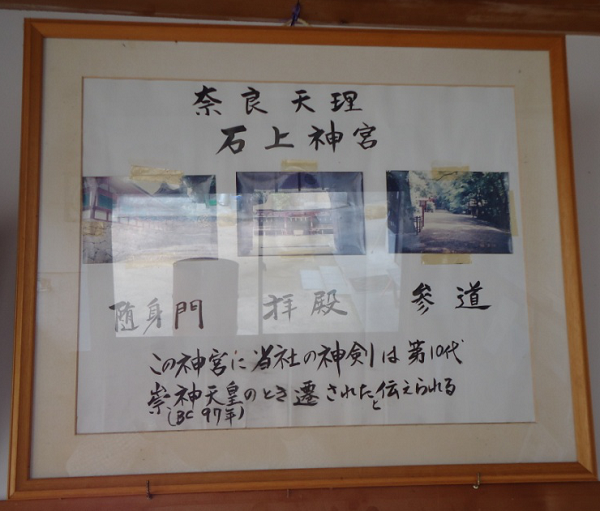 奈良天理
石上神宮
随身門 拝殿 参道
この神宮に当社の神剣は第10代
崇神天皇のとき遷されたと伝えられる
(BC 97年)